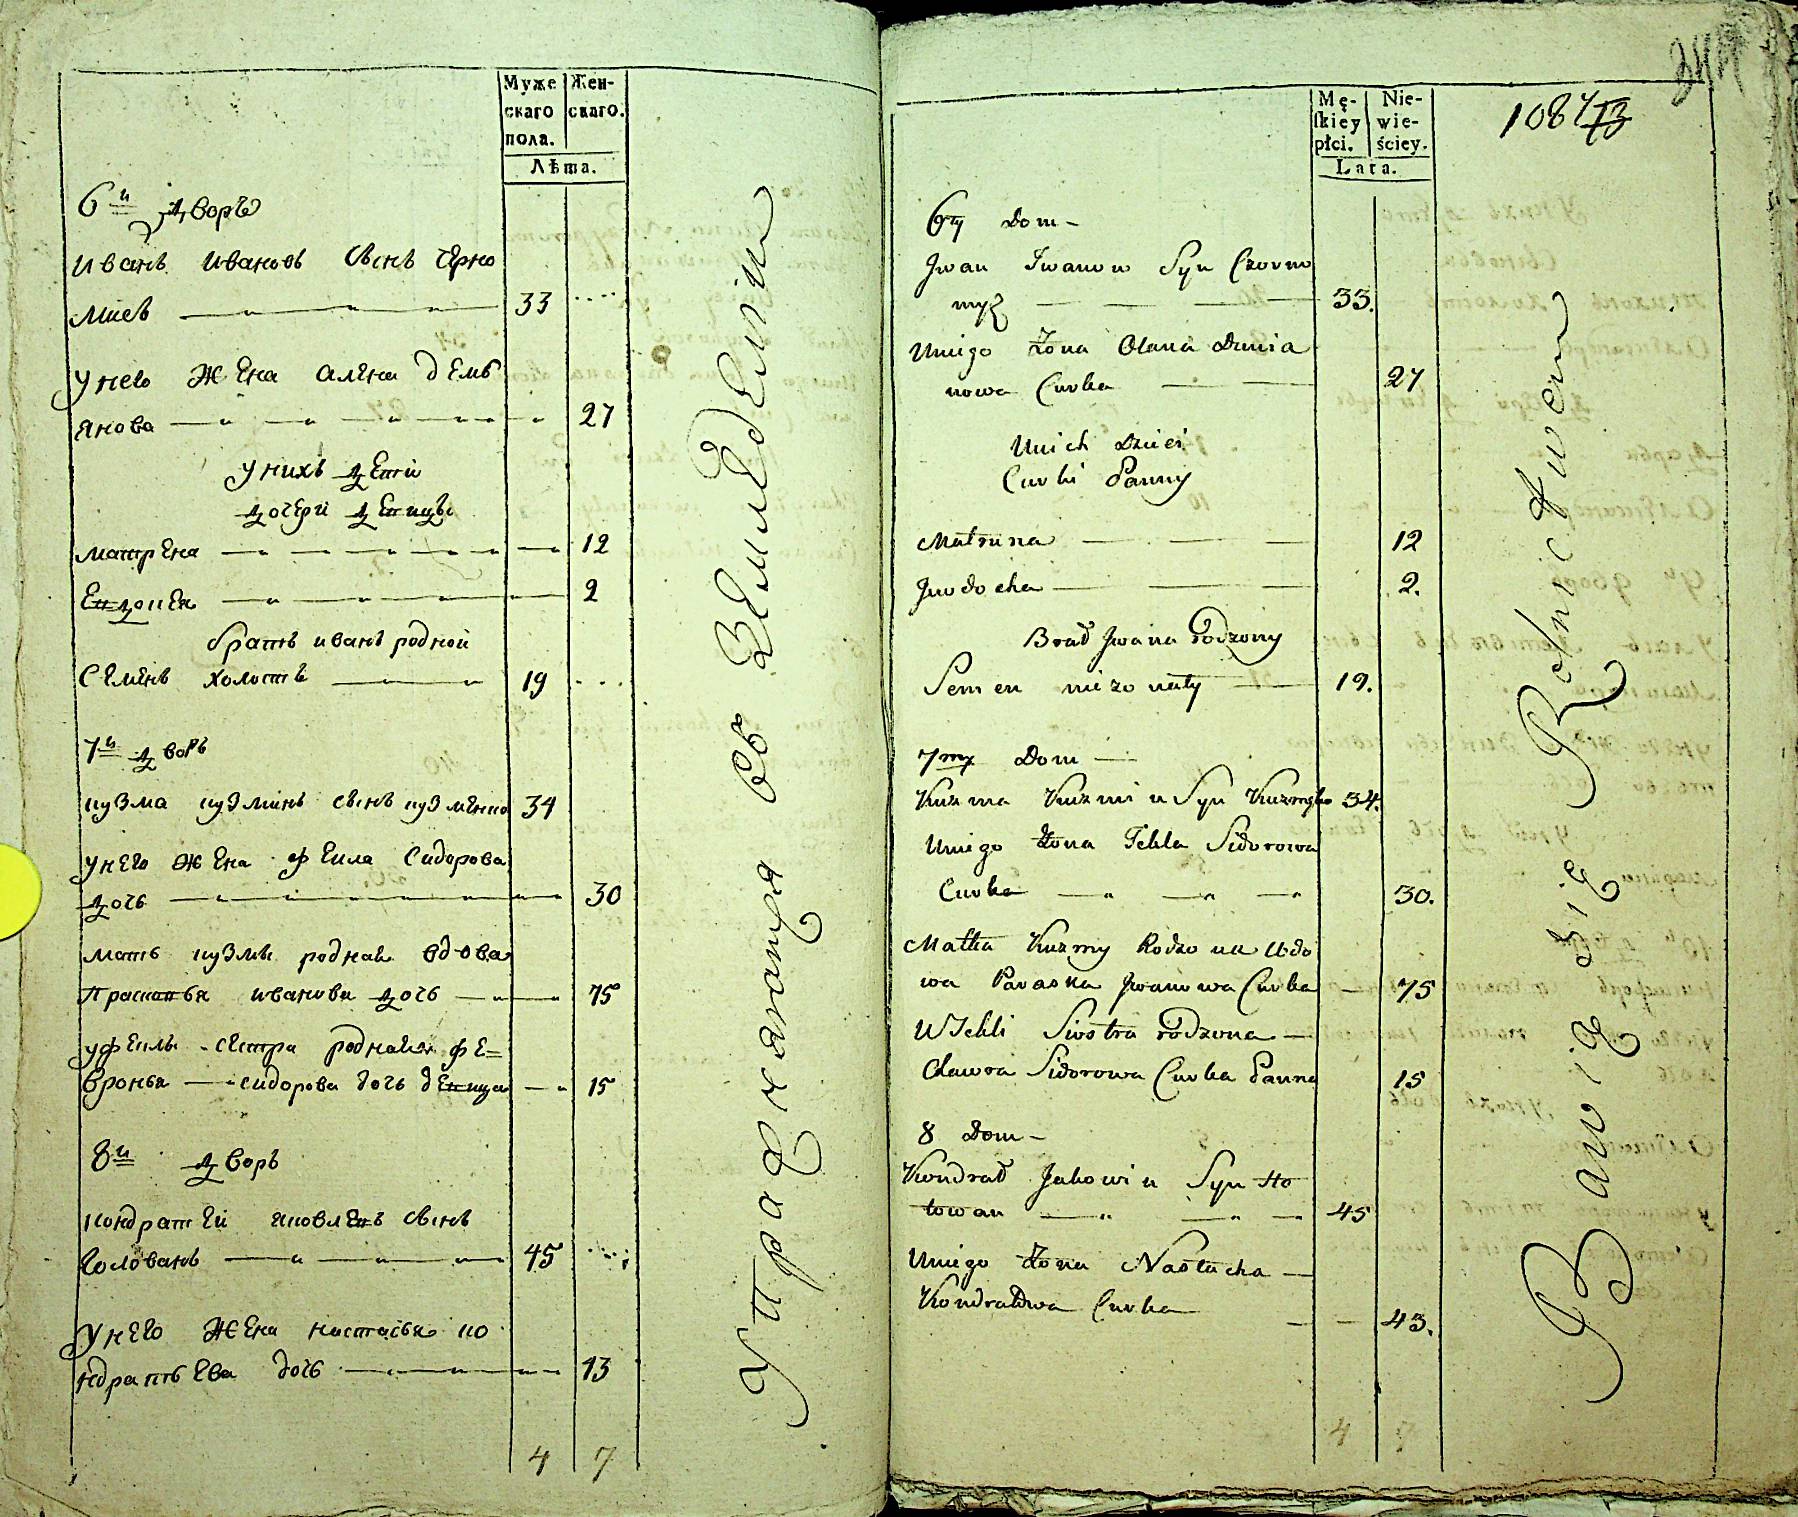 Муже
скаго
пола.
Жен-
скаго.
Лѣта.
6й дворъ
иванъ ивановъ сынъ черно
мыс
33
унево жена алена демь
янова
27
унихъ дети
дочери девицы
матрена
12
Евдокея
2
братъ иванъ родной
Семенъ холостъ
19
7й дворъ
кузма кузминъ сынъ кузменко
34
унего жена фекла Сидорова
дочь
30
мать кузмы родная вдова
прасковья иванова дочь
75
уфеклы сестра родная фе=
вронья сидорова дочь девица
15
8й дворъ
кондратей яковлевъ сынъ
голованъ
45
унего жена настасья ко
ндратьева дочь
43
4 7
Упражняются въ Земледелии
Mę-
skiey
płci.
Nie-
wie-
ściey.
Lata.
1087
6ty Dom
Jwan Iwanow Syn Czorno
myz
33.
Uniego Żona Olana Dmia
nowa Curka
27
Unich Dzieci
Curki Panny
Matruna
12
Jwdocha
2.
Brat Jwana Rodzony
Semen niezonaty
19.
7my Dom
Kuzma Kuzmin Syn Kuzmenko
34.
Uniego Żona Tekla Sidorowa
Curka
30.
Matka Kuzmy Rodzona Wdo
wa Paraska Jwanowa Curka
75
UTekli Siostra rodzona
Chawra Sidorowa Curka Panna
15
8 Dom
Kondrat Jakowin Syn Ho
łowan
45
Uniego Żona Nastacha
Kondratowa Curka
43.
4 7
Bawią się Rolnictwem